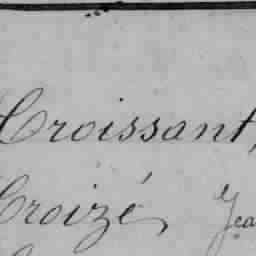 Croissant,
Croizé, Jea